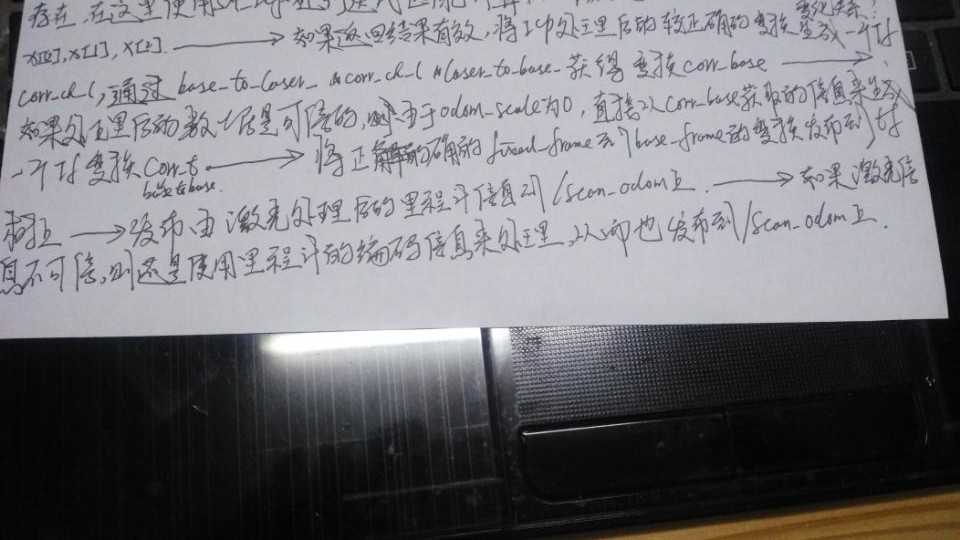 存在,在这里使用
x[0], x[1], x[2]. → 如果返回结果有效,将ICP处理后的较正确的变换生成一个tf
corr_ch_l,通过 base_to_laser_ * corr_ch_l * laser_to_base_ 获得变换corr_base →
如果处理后的数据是可信的,则由于odom_scale为0,直接以corr_base获取的信息来生成
一个tf变换 corr_t → 将正确的fixed_frame到base_frame的变换发布到tf
base to base.
树上 → 发布由激光处理后的里程计信息到/scan_odom上. → 如果激光信
息不可信,则还是使用里程计的编码信息来处理,从而也发布到/scan_odom上.